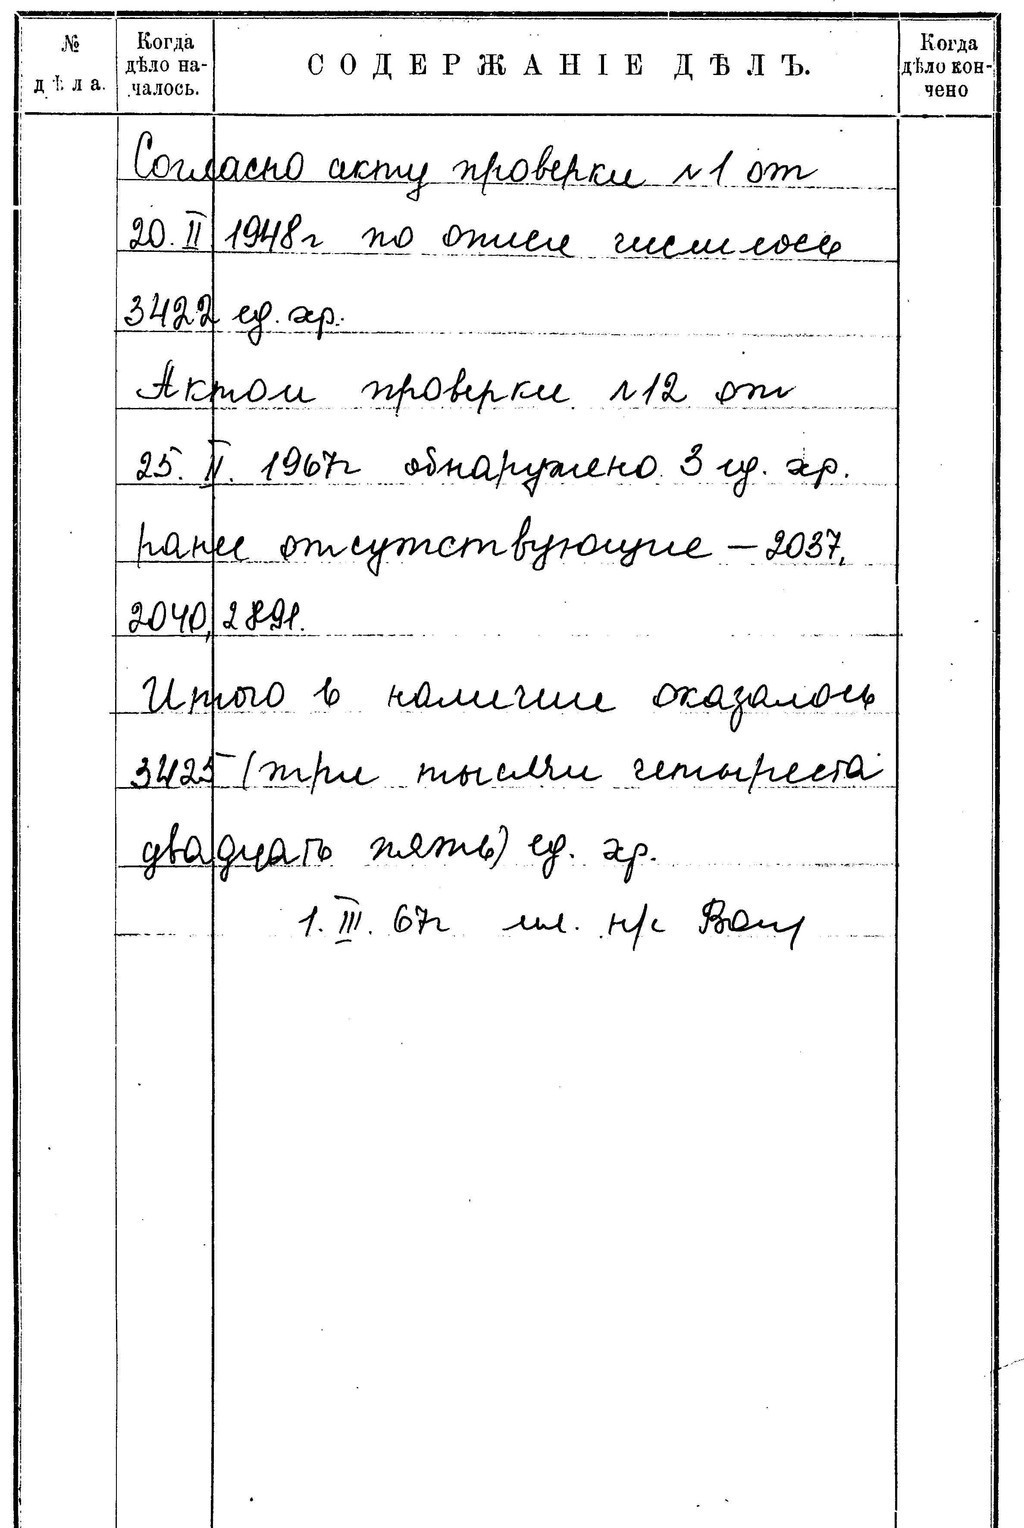 №
дѣла.
Когда
дѣло на-
чалось.
СОДЕРЖАНІЕ ДѢЛЪ.
Когда
дѣло кон-
чено
Согласно акту проверки №1 от
20. II 1948г по описи числилось
3422 ед. хр.
Актом проверки №12 от
25. II. 1967г обнаружено 3 ед. хр.
ранее отсутствующие — 2037,
2040, 2891.
Итого в наличии оказалось
3425 (три тысячи четыреста
двадцать пять) ед. хр.
1. III. 67г мл. н/с